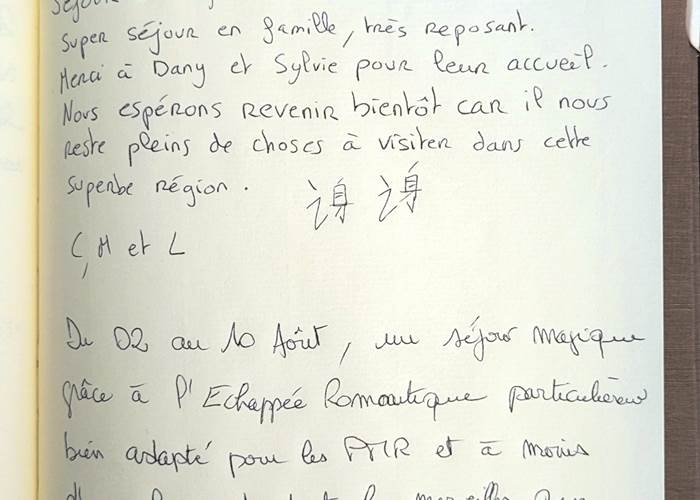 Séjour
Super séjour en famille, très reposant.
Merci à Dany et Sylvie pour leur accueil.
Nous espérons revenir bientôt car il nous
reste pleins de choses à visiter dans cette
superbe région.
C, M et L
Du 02 au 10 Août, un séjour magique
grâce à l'Echappée Romantique particulièrem
bien adapté pour les PMR et à moins